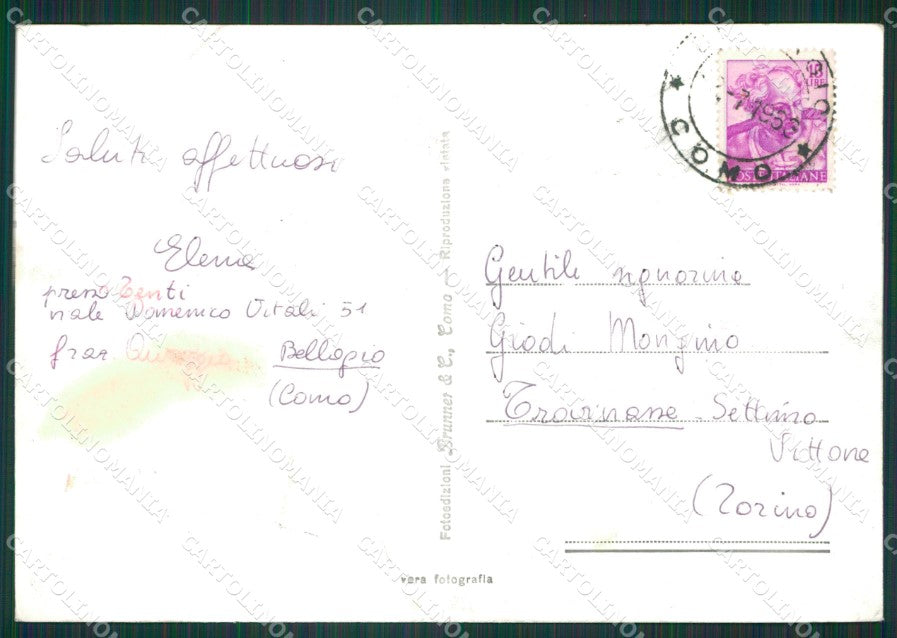 Saluti affettuosi
Elena
presso Zenti
viale Domenico Vitali 51
fraz.
Bellagio
(Como)
Fotoedizioni Brunner & C., Como - Riproduzione vietata
15
LIRE
POSTE ITALIANE
COMO
Gentile signorina
Giodi Mongino
Settimo
Vittone
(Torino)
vera fotografia
CARTOLINOMANIA